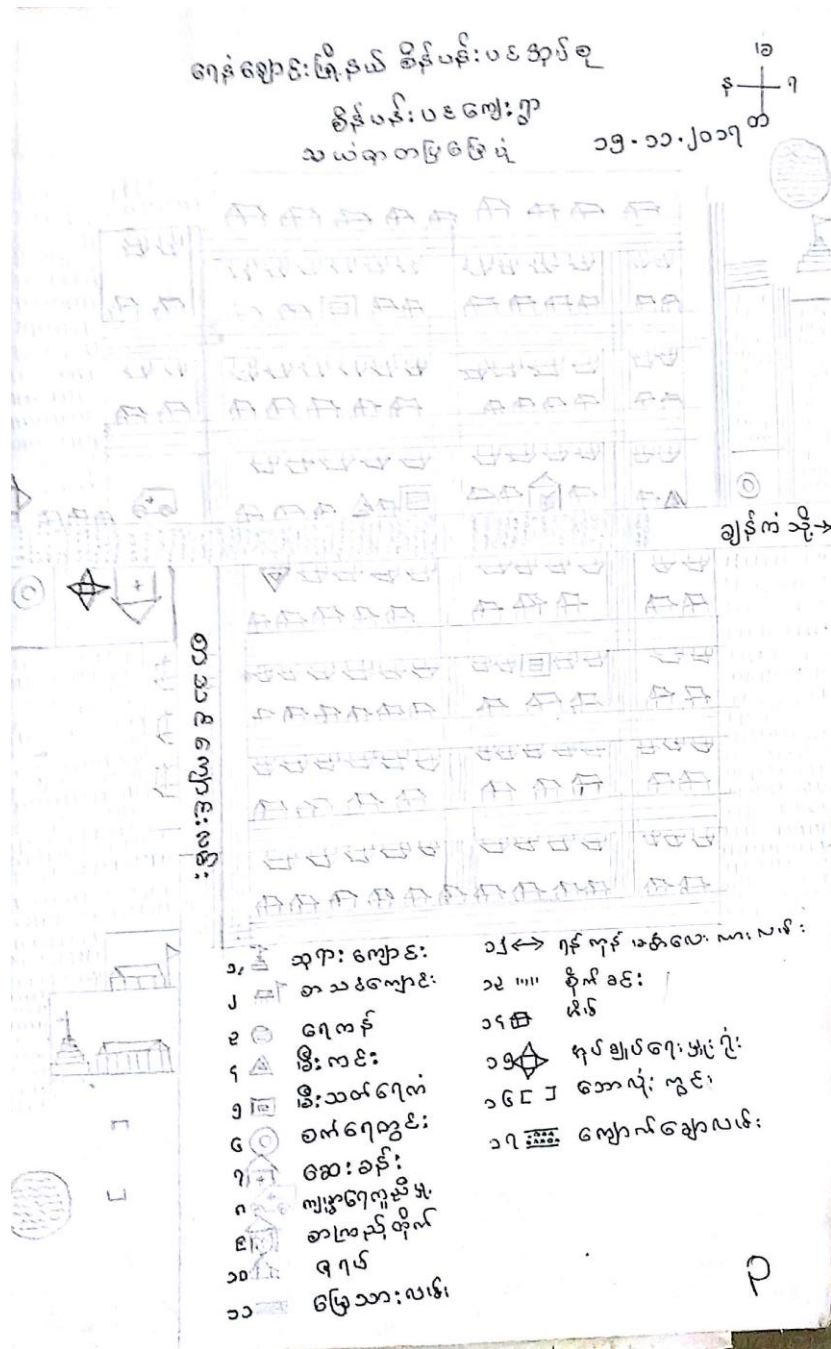 ရေနံချောင်းမြို့နယ် စိန်ပန်းပင်အုပ်စု
စိန်ပန်းပင်ကျေးရွာ
သယံဇာတပြမြေပုံ
၁၅.၁၁.၂၀၁၇
အ
န
ရ
တ
ချွန်ကံသို့→
စာသင်ကျောင်းလမ်း
၁, ဘုရားကျောင်း
၂ စာသင်ကျောင်း
၃ ရေကန်
၄ မီးကင်း
၅ မီးသတ်ရေကံ
၆ စက်ရေတွင်း
၇ ဆေးခန်း
၈ ကျန်းမာရေးကူညီမှု
၉ စာကြည့်တိုက်
၁၀ ဇရပ်
၁၁ မြေသားလမ်း
၁၂ ↔ ရန်ကုန် မန္တလေး ကားလမ်း
၁၃ """ စိုက်ခင်း
၁၄ အိမ်
၁၅ အုပ်ချုပ်ရေးမှူးရုံး
၁၆ [ ] ဘောလုံးကွင်း
၁၇ ကျောက်ချောလမ်း